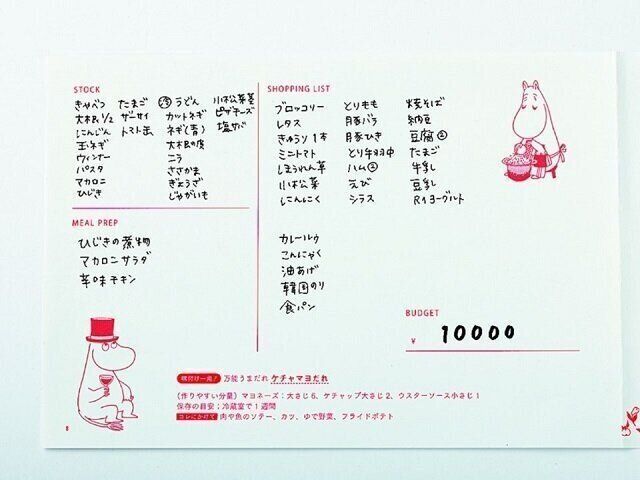 STOCK
きゃべつ
大根 1/2
にんじん
玉ネギ
ウィンナー
パスタ
マカロニ
ひじき
たまご
ザーサイ
トマト缶
冷 うどん
カットネギ
ネギ(青)
大根の皮
ニラ
ささかま
ぎょうざ
じゃがいも
小松菜茎
ピザチーズ
塩サバ
MEAL PREP
ひじきの煮物
マカロニサラダ
辛味チキン
SHOPPING LIST
ブロッコリー
レタス
きゅうり 1本
ミニトマト
しほうれん草
小松菜
にんにく
とりもも
豚バラ
豚ひき
とり手羽中
ハム②
えび
シラス
焼そば
納豆
豆腐②
たまご
牛乳
豆乳
R1ヨーグルト
カレールウ
こんにゃく
油あげ
韓国のり
食パン
BUDGET
¥ 10000
味付け一発! 万能うまだれ ケチャマヨだれ
(作りやすい分量) マヨネーズ:大さじ6、ケチャップ大さじ2、ウスターソース小さじ1
保存の目安:冷蔵室で1週間
コレにかけて 肉や魚のソテー、カツ、ゆで野菜、フライドポテト
8